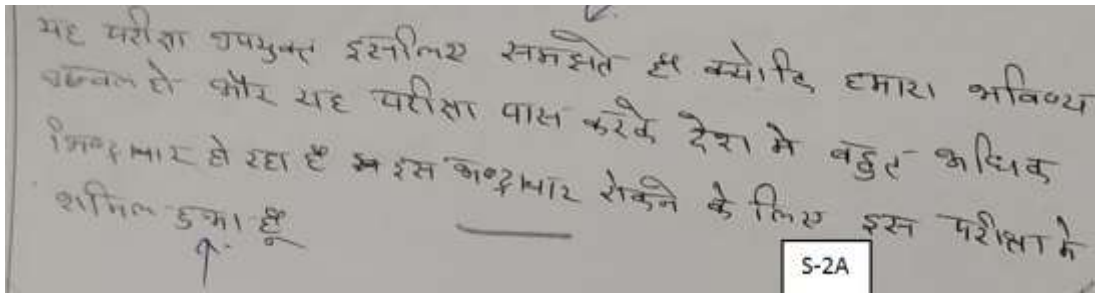 यह परीक्षा उपयुक्त इसलिए समझते है क्योकि हमारा भविष्य
उज्जवल हो और यह परीक्षा पास करके देश मे बहुत अधिक
भ्रष्ट्राचार हो रहा है इस भ्रष्ट्राचार रोकने के लिए इस परीक्षा मे
शामिल हुआ हूँ
S-2A